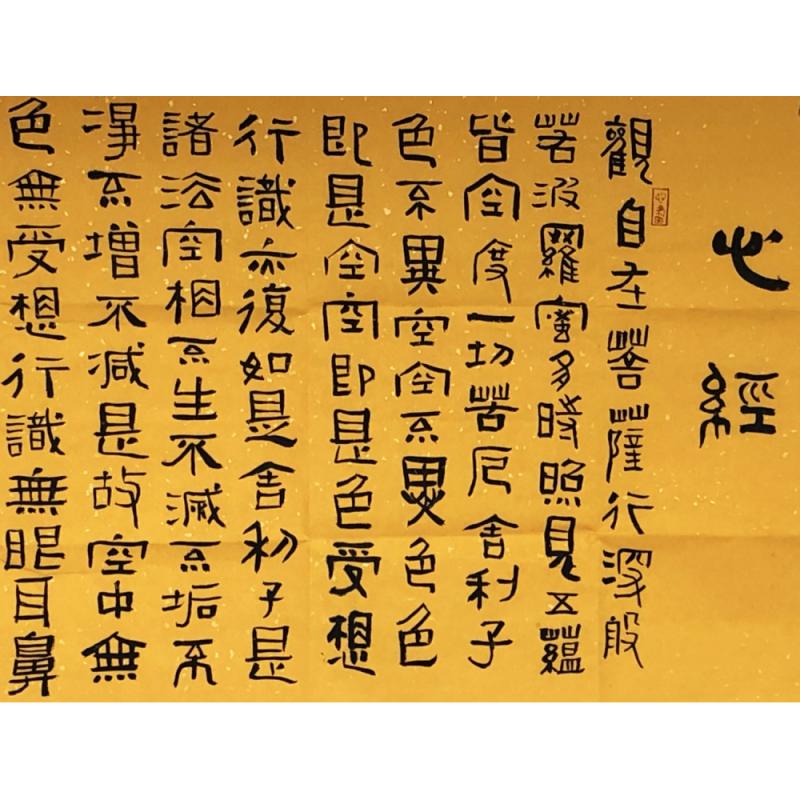 心經
觀自在菩薩行深般
若波羅蜜多時照見五蘊
皆空度一切苦厄舍利子
色不異空空不異色色
即是空空即是色受想
行識亦復如是舍利子是
諸法空相不生不滅不垢不
淨不增不減是故空中無
色無受想行識無眼耳鼻